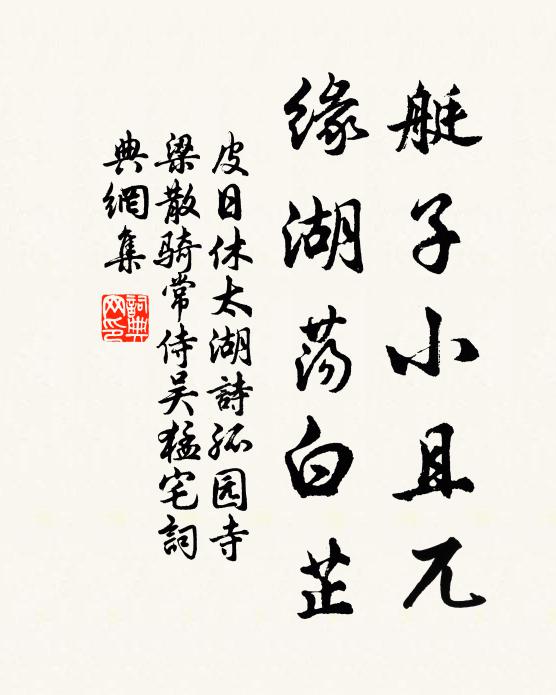 艇子小且兀
缘湖荡白芷
皮日休太湖詩孤园寺
梁散騎常侍吴猛宅詞
典網集
詞典网印